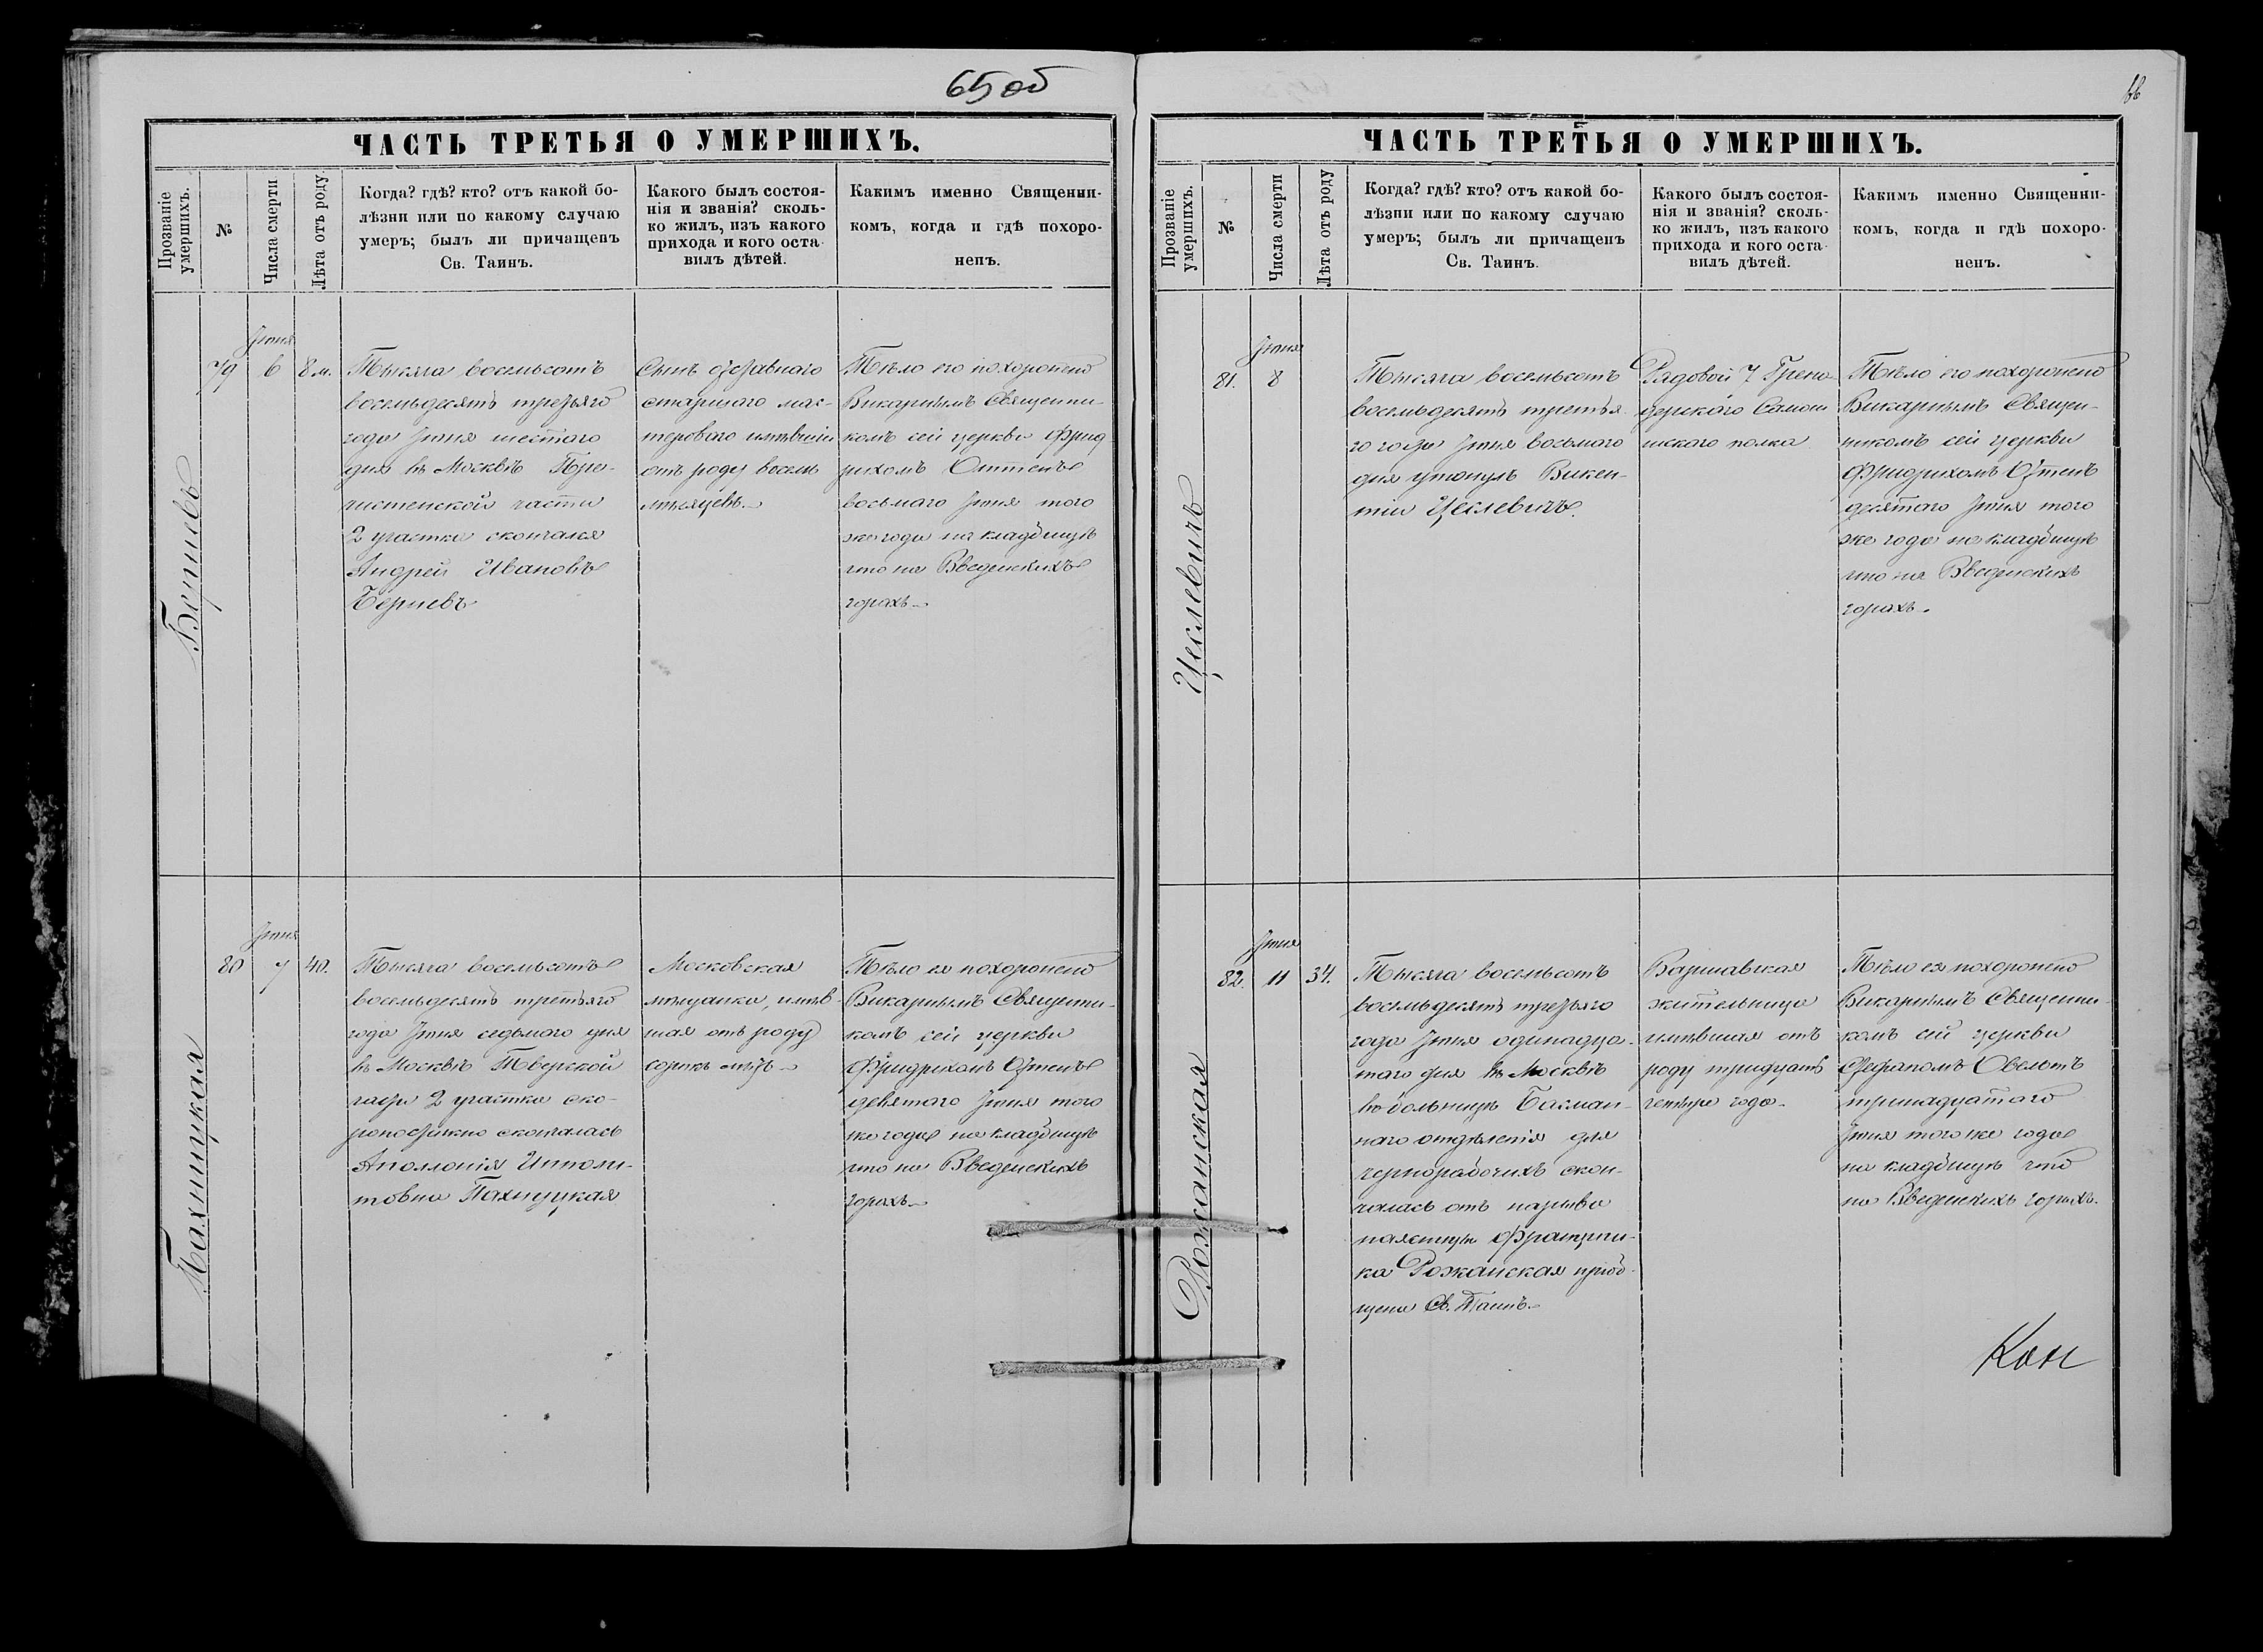 65 об
ЧАСТЬ ТРЕТЬЯ О УМЕРШИХЪ.
Прозваніе умершихъ.
№
Числа смерти
Лѣта отъ роду
Когда? гдѣ? кто? отъ какой бо-
лѣзни или по какому случаю
умеръ; былъ ли причащенъ
Св. Таинъ.
Какого былъ состоя-
нія и званія? сколь-
ко жилъ, изъ какого
прихода и кого оста-
вилъ дѣтей.
Какимъ именно Священни-
комъ, когда и гдѣ похоро-
ненъ.
Іюня
79
6
8 м.
Тысяча восемьсотъ
восемьдесятъ третьяго
года Іюня шестого
дня въ Москвѣ Пре-
чистенской части
2 участка скончался
Андрей Ивановъ
Сынъ отставного
старшого мас-
терового имѣвшій
отъ роду восемь
мѣсяцевъ.
Тѣло его похоронено
Викарнымъ Священни-
комъ сей церкви Фрид-
рихомъ Оттенъ
восьмаго Іюня того
же года на кладбищѣ
что на Введенскихъ
горахъ.
Іюня
80
7
40.
Пахницкая
Тысяча восемьсотъ
восемьдесятъ третьяго
года Іюня седьмого дня
въ Москвѣ Тверской
части 2 участка ско-
ропостижно скончалась
Аполлонія Иполи-
товна Пахницкая
Московская
мѣщанка, имѣв-
шая отъ роду
сорокъ лѣтъ
Тѣло ея похоронено
Викарнымъ Священни-
комъ сей церкви
Фридрихомъ Оттенъ
девятого Іюня того
же года на кладбищѣ
что на Введенскихъ
горахъ.
66
ЧАСТЬ ТРЕТЬЯ О УМЕРШИХЪ.
Прозваніе умершихъ.
№
Числа смерти
Лѣта отъ роду
Когда? гдѣ? кто? отъ какой бо-
лѣзни или по какому случаю
умеръ; былъ ли причащенъ
Св. Таинъ.
Какого былъ состоя-
нія и званія? сколь-
ко жилъ, изъ какого
прихода и кого оста-
вилъ дѣтей.
Какимъ именно Священни-
комъ, когда и гдѣ похоро-
ненъ.
Іюня
81.
8
Цеслевичъ
Тысяча восемьсотъ
восемьдесятъ третья-
го года Іюня восьмого
дня утонулъ Викен-
тій Цеслевичъ.
Рядовой 7 Грена-
дерского Самои
тского полка
Тѣло его похоронено
Викарнымъ Священ-
никомъ сей церкви
Фридрихомъ Оттенъ
десятого Іюня того
же года на кладбищѣ
что на Введенскихъ
горахъ.
Іюня
82.
11
34.
Рожанская
Тысяча восемьсотъ
восемьдесятъ третьяго
года Іюня одинадца-
того дня въ Москвѣ
въ больницѣ Басман-
наго отдѣленія для
чернорабочихъ скон-
чалась отъ нарыва
Францишка Рожанская приоб-
щена Св. Таинъ.
Варшавская
жительница
имѣвшая отъ
роду тридцать
четыре года.
Тѣло ея похоронено
Викарнымъ Священни-
комъ сей церкви
Стефаномъ Овельтъ
тринадцатаго
Іюня того же года
на кладбищѣ что
на Введенскихъ горахъ.